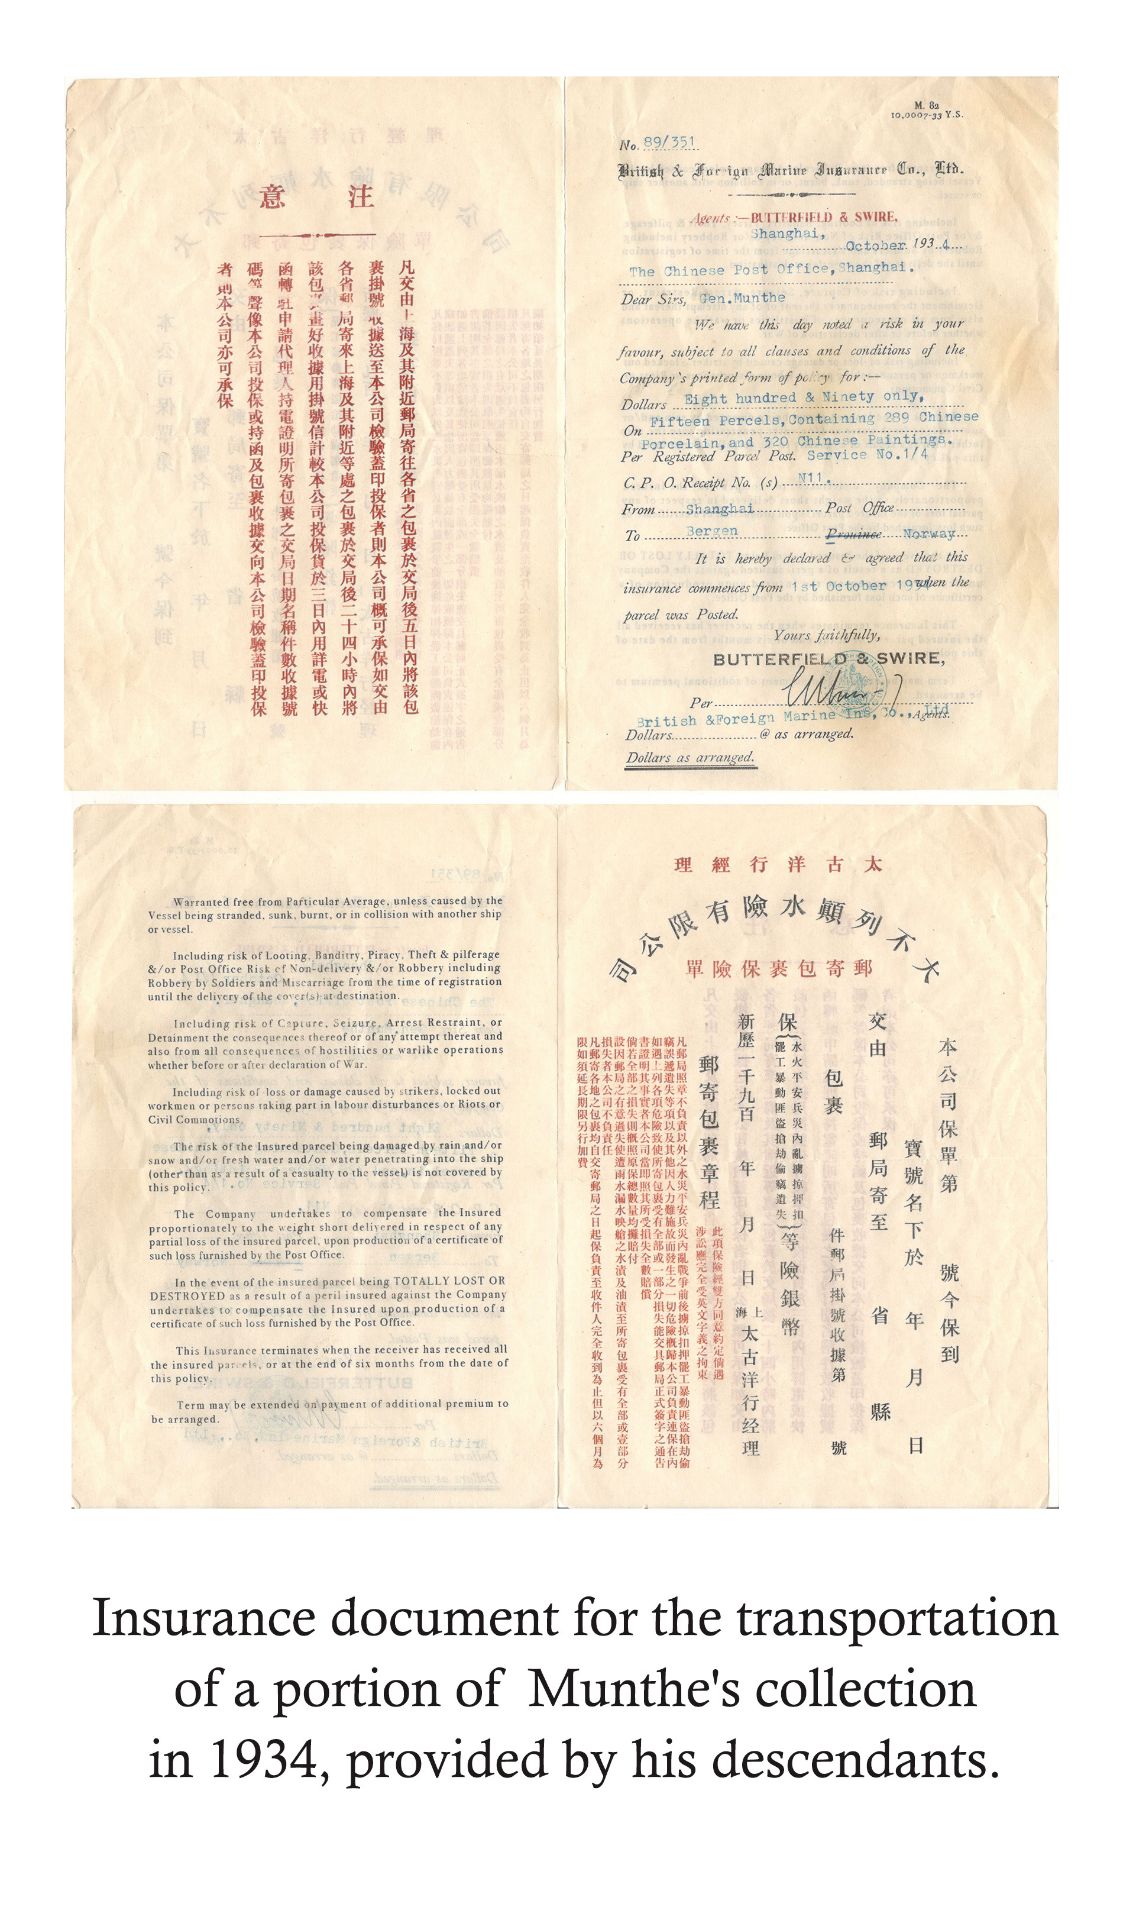 注意
凡交由上海及其附近郵局寄往各省之包裹於交局後五日內將該包
裹掛號收據送至本公司檢驗蓋印投保者則本公司概可承保如交由
各省郵局寄來上海及其附近等處之包裹於交局後二十四小時內將
該包裹畫好收據用掛號信計較本公司投保貨於三日內用詳電或快
函轉駐申請代理人持電證明所寄包裹之交局日期名稱件數收據號
碼等聲像本公司投保或持函及包裹收據交向本公司檢驗蓋印投保
者則本公司亦可承保
M. 82
10,0007-33 Y.S.
No. 89/351
British & Foreign Marine Insurance Co., Ltd.
Agents:—BUTTERFIELD & SWIRE,
Shanghai,
October 1934
The Chinese Post Office, Shanghai.
Dear Sirs, Gen.Munthe
We have this day noted a risk in your
favour, subject to all clauses and conditions of the
Company's printed form of policy for:—
Dollars Eight hundred & Ninety only,
On Fifteen Percels, Containing 289 Chinese
Porcelain, and 320 Chinese Paintings.
Per Registered Parcel Post. Service No.1/4
C. P. O. Receipt No. (s) N11.
From Shanghai Post Office
To Bergen Province Norway
It is hereby declared & agreed that this
insurance commences from 1st October 1934 when the
parcel was Posted.
Yours faithfully,
BUTTERFIELD & SWIRE,
Per
British &Foreign Marine Ins, Co., Ltd Agents.
Dollars @ as arranged.
Dollars as arranged.
Warranted free from Particular Average, unless caused by the
Vessel being stranded, sunk, burnt, or in collision with another ship
or vessel.
Including risk of Looting, Banditry, Piracy, Theft & pilferage
&/or Post Office Risk of Non-delivery &/or Robbery including
Robbery by Soldiers and Miscarriage from the time of registration
until the delivery of the cover(s) at destination.
Including risk of Capture, Seizure, Arrest Restraint, or
Detainment the consequences thereof or of any attempt thereat and
also from all consequences of hostilities or warlike operations
whether before or after declaration of War.
Including risk of loss or damage caused by strikers, locked out
workmen or persons taking part in labour disturbances or Riots or
Civil Commotions.
The risk of the Insured parcel being damaged by rain and/or
snow and/or fresh water and/or water penetrating into the ship
(other than as a result of a casualty to the vessel) is not covered by
this policy.
The Company undertakes to compensate the Insured
proportionately to the weight short delivered in respect of any
partial loss of the insured parcel, upon production of a certificate of
such loss furnished by the Post Office.
In the event of the insured parcel being TOTALLY LOST OR
DESTROYED as a result of a peril insured against the Company
undertakes to compensate the Insured upon production of a
certificate of such loss furnished by the Post Office.
This Insurance terminates when the receiver has received all
the insured parcels, or at the end of six months from the date of
this policy.
Term may be extended on payment of additional premium to
be arranged.
太古洋行經理
大不列顛水險有限公司
郵寄包裹保險單
本公司保單第 號今保到
寶號名下於 年 月 日
交由 郵局寄至 省 縣
包裹 件郵局掛號收據第 號
保 水火平安兵災內亂擄掠押扣
罷工暴動匪盜搶劫偷竊遺失 等險銀幣
新歷一千九百 年 月 日 上海太古洋行经理
郵寄包裹章程 此項保險經雙方同意約定倘遇
涉訟應完全受英文字義之拘束
凡郵局照章不負責以外之水災平安兵災內亂戰爭前後擄掠扣押罷工暴動匪盜搶劫偷
竊誤遞遺失等項以及其他因人力難施故而發生之一切危險概歸本公司負責連保在內
如遇上列各項危險致使所寄包裹受有全部或一部分損失能交具郵局正式簽字之通告
書證明其事實者本公司當即照其所受損失全數賠償
倘若全部之損失則概照原保總數量均攤賠付
設因郵局之有意過失使遭雨水漏水映艙之水漬及油漬至所寄包裹受有全部或壹部分
損失者本公司不負責任
凡郵寄各地之包裹均自交寄郵局之日起保負責至收件人完全收到為止但以六個月為
限如須延長期限另行加費
Insurance document for the transportation
of a portion of Munthe's collection
in 1934, provided by his descendants.